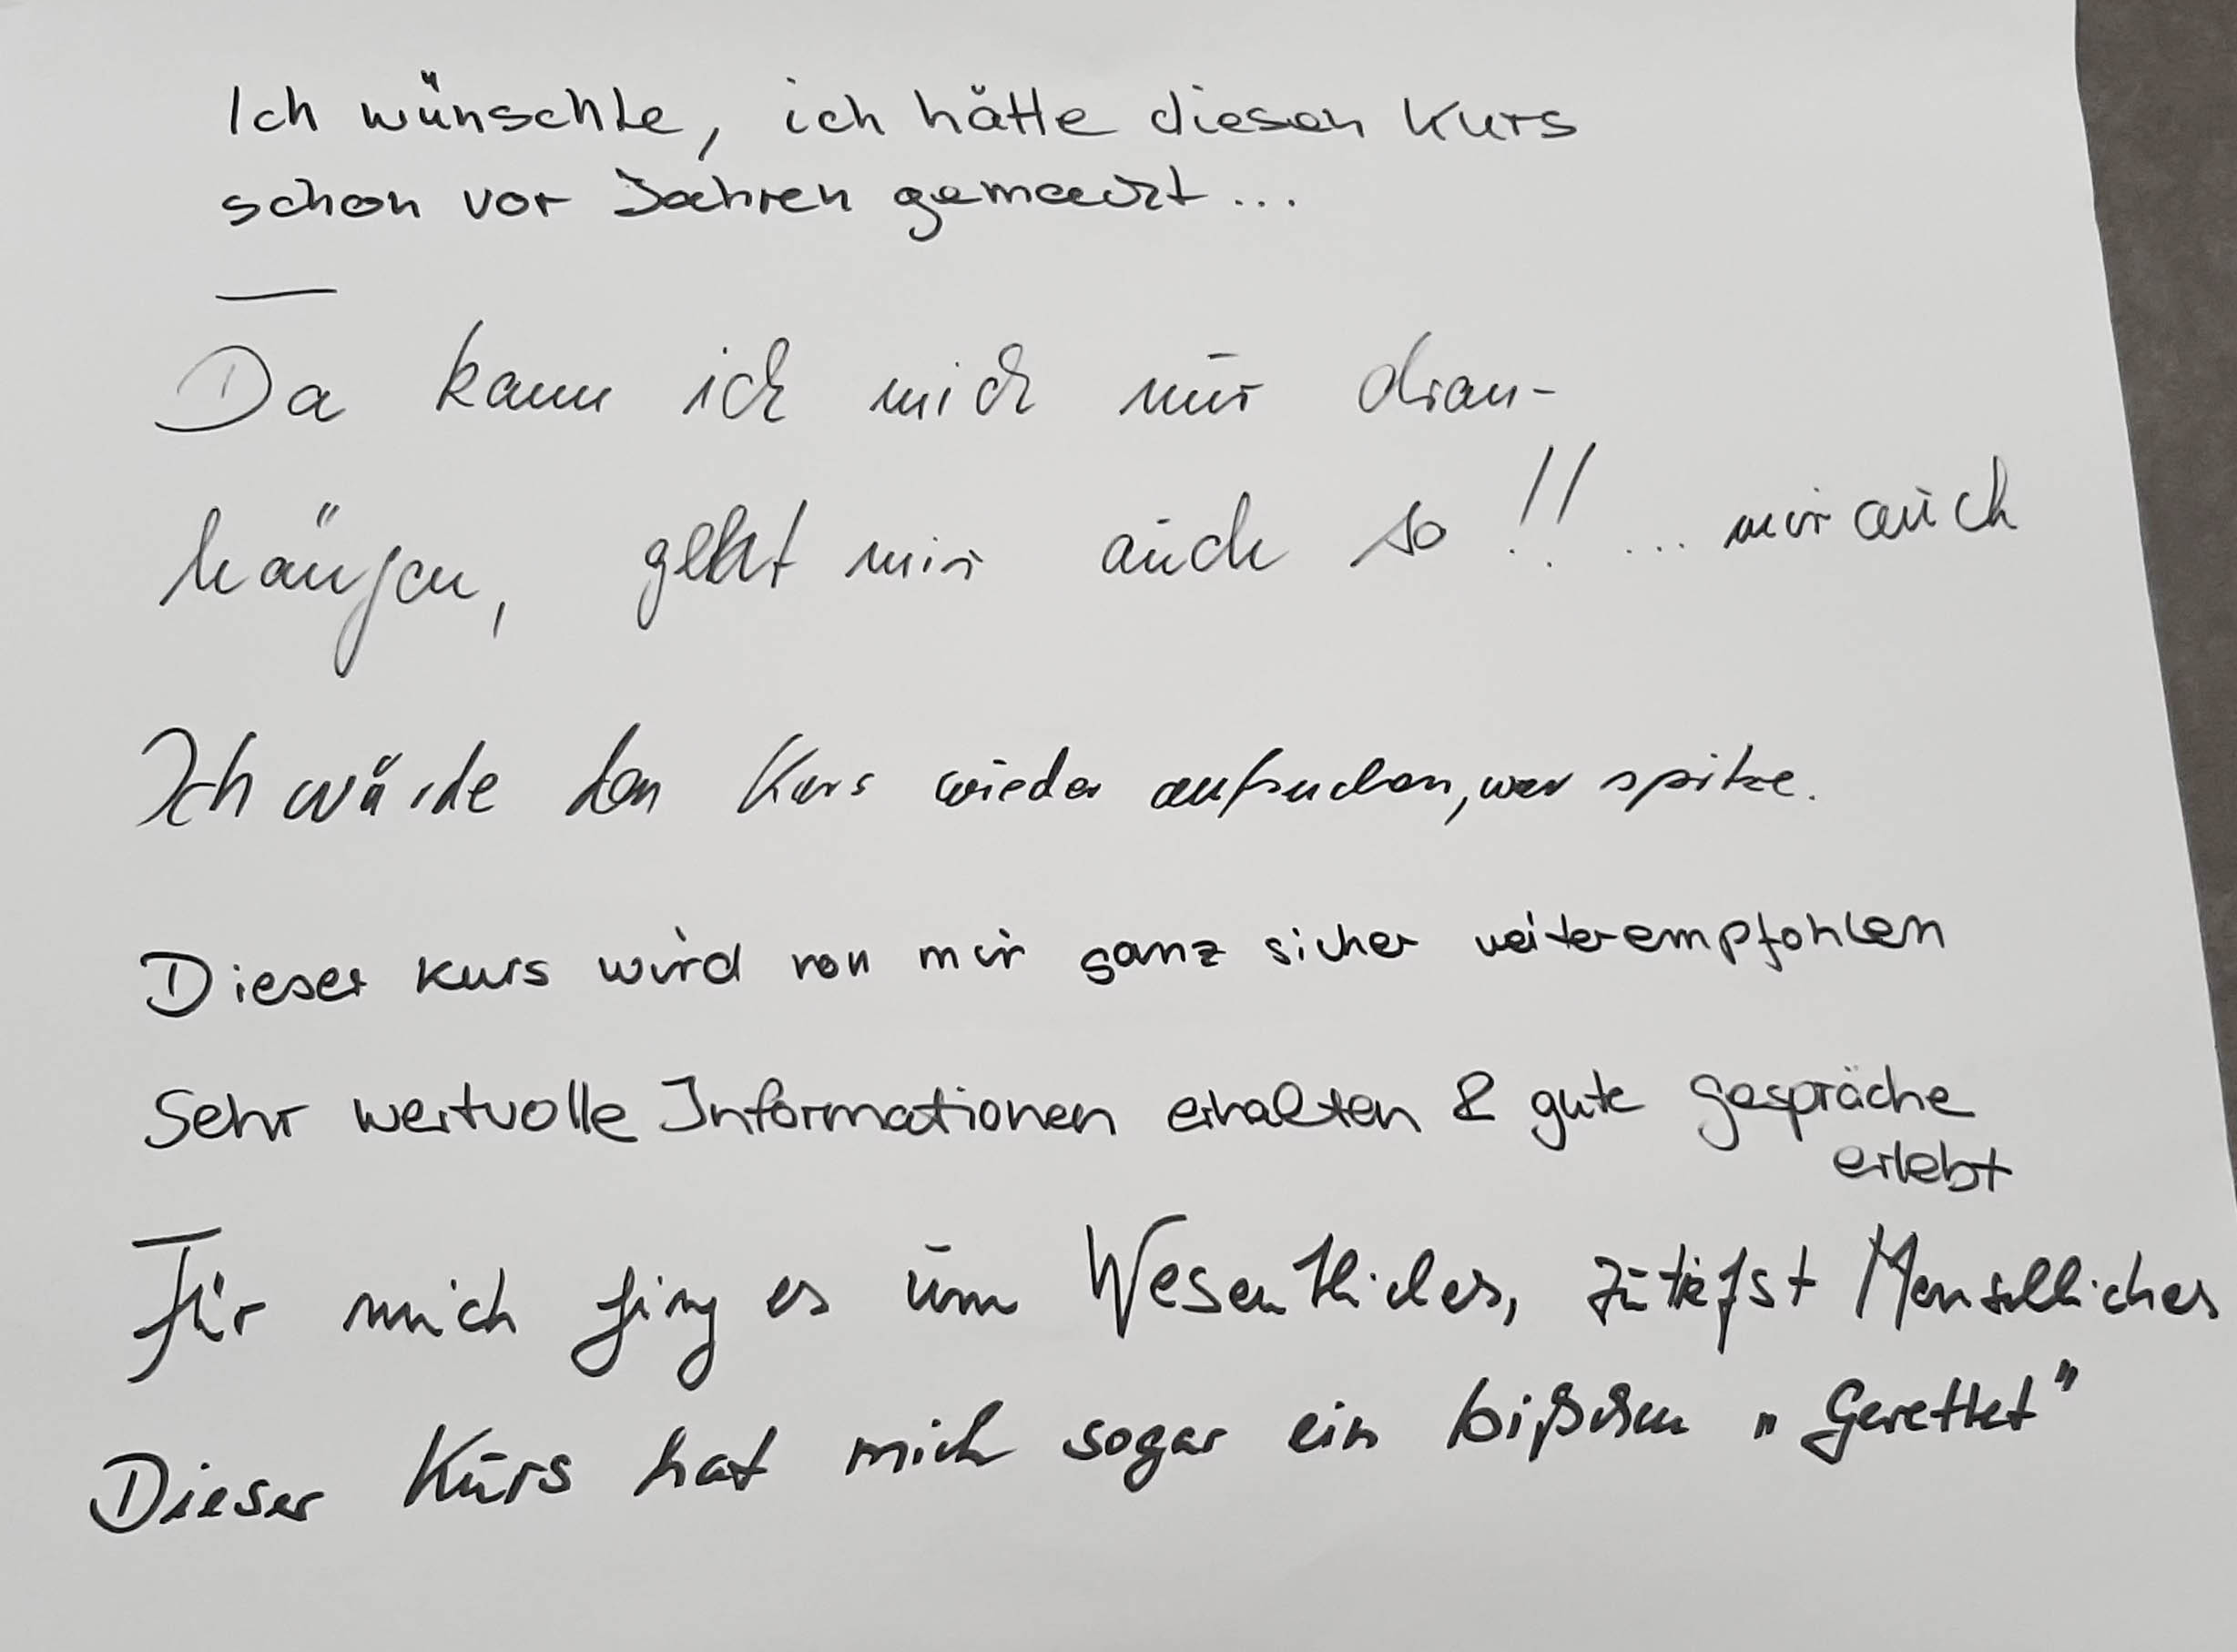 Ich wünschte, ich hätte diesen Kurs
schon vor Jahren gemacht...
Da kann ich mich nur dran-
hängen, geht mir auch so!! ... mir auch
Ich würde den Kurs wieder aufsuchen, war spitze.
Dieser Kurs wird von mir ganz sicher weiterempfohlen
Sehr wertvolle Informationen erhalten & gute Gespräche
erlebt
Für mich ging es um Wesentliches, zutiefst Menschliches
Dieser Kurs hat mich sogar ein bißchen „Gerettet"